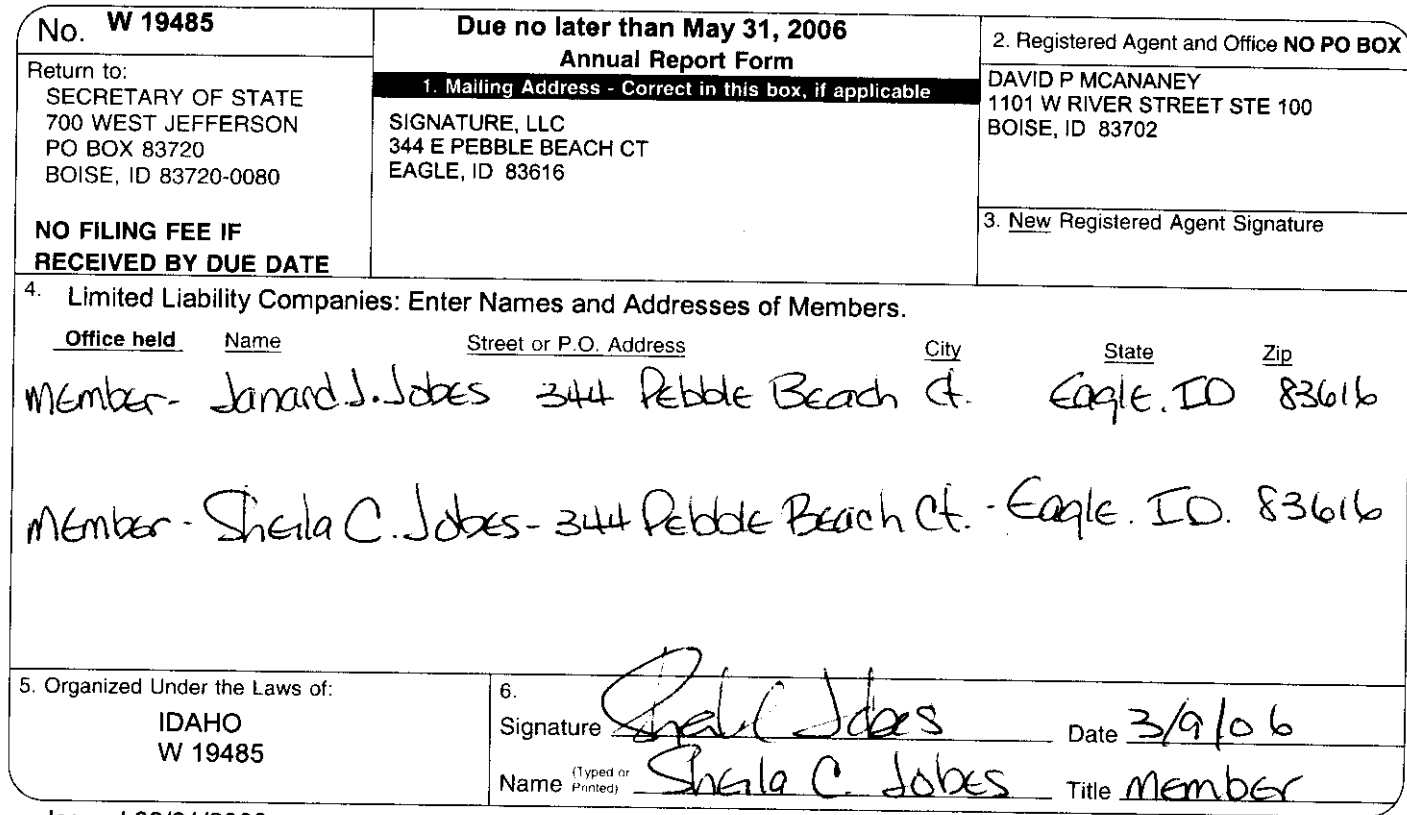 No. W 19485
Return to:
SECRETARY OF STATE
700 WEST JEFFERSON
PO BOX 83720
BOISE, ID 83720-0080
NO FILING FEE IF
RECEIVED BY DUE DATE
Due no later than May 31, 2006
Annual Report Form
1. Mailing Address - Correct in this box, if applicable
SIGNATURE, LLC
344 E PEBBLE BEACH CT
EAGLE, ID 83616
2. Registered Agent and Office NO PO BOX
DAVID P MCANANEY
1101 W RIVER STREET STE 100
BOISE, ID 83702
3. New Registered Agent Signature
4. Limited Liability Companies: Enter Names and Addresses of Members.
Office held Name Street or P.O. Address City State Zip
Member- Janard J. Jobes 344 Pebble Beach Ct. Eagle. ID 83616
Member - Sheila C. Jobes - 344 Pebble Beach Ct. - Eagle. ID. 83616
5. Organized Under the Laws of:
IDAHO
W 19485
6.
Signature Sheila C Jobes Date 3/9/06
Name (Typed or Printed) Sheila C. Jobes Title Member